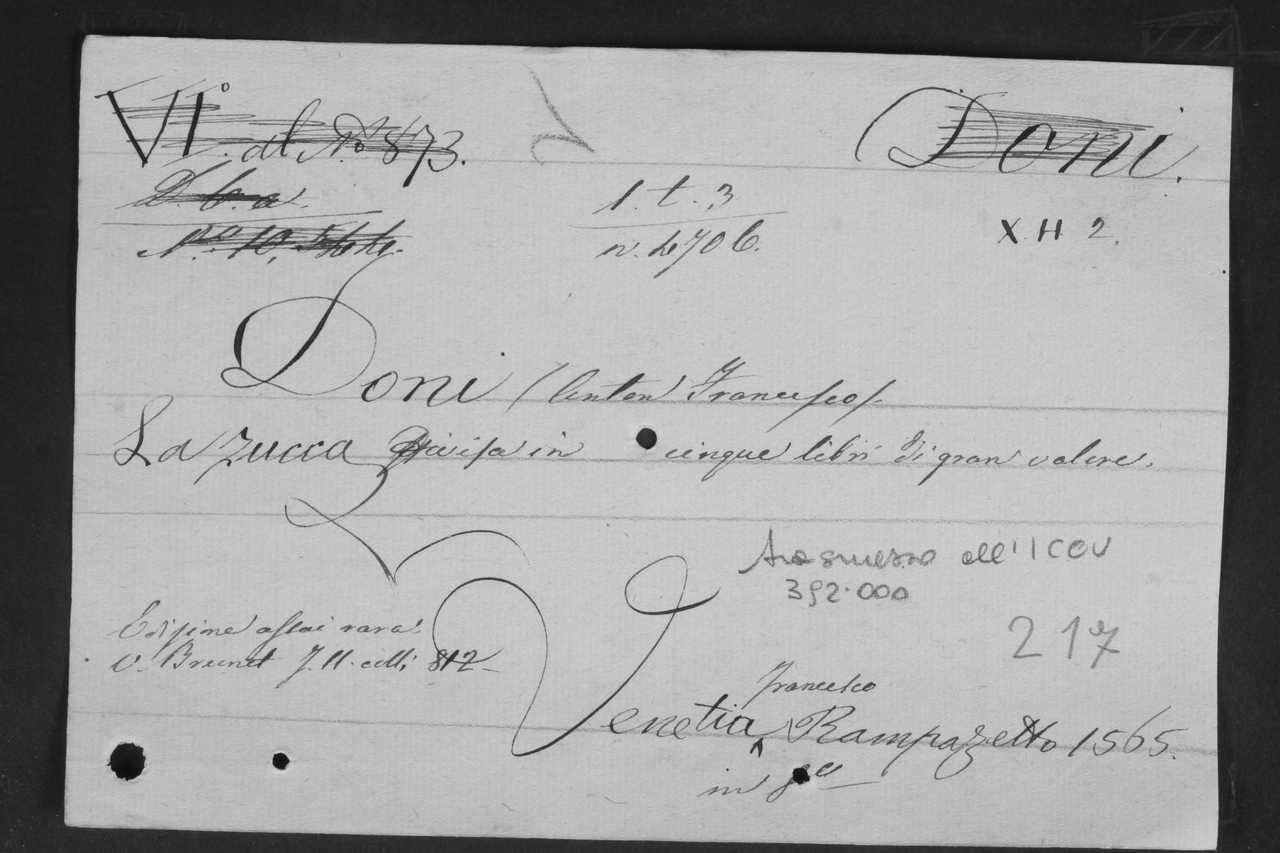 VI.° al N.° 873.
Doni.
D. b. a.
N.ro 10,
1. t. 3
n. 4706.
X H 2.
Doni (Anton Francesco).
La zucca divisa in cinque libri di gran valore.
trasmesso all'ICCU
392.000
217
Edizione assai rara.
V. Brunet T. II. coll. 812
Francesco
Venetia ^ Rampazetto 1565.
in 8°